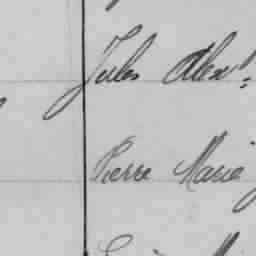 Jules Alex.
Pierre Marie